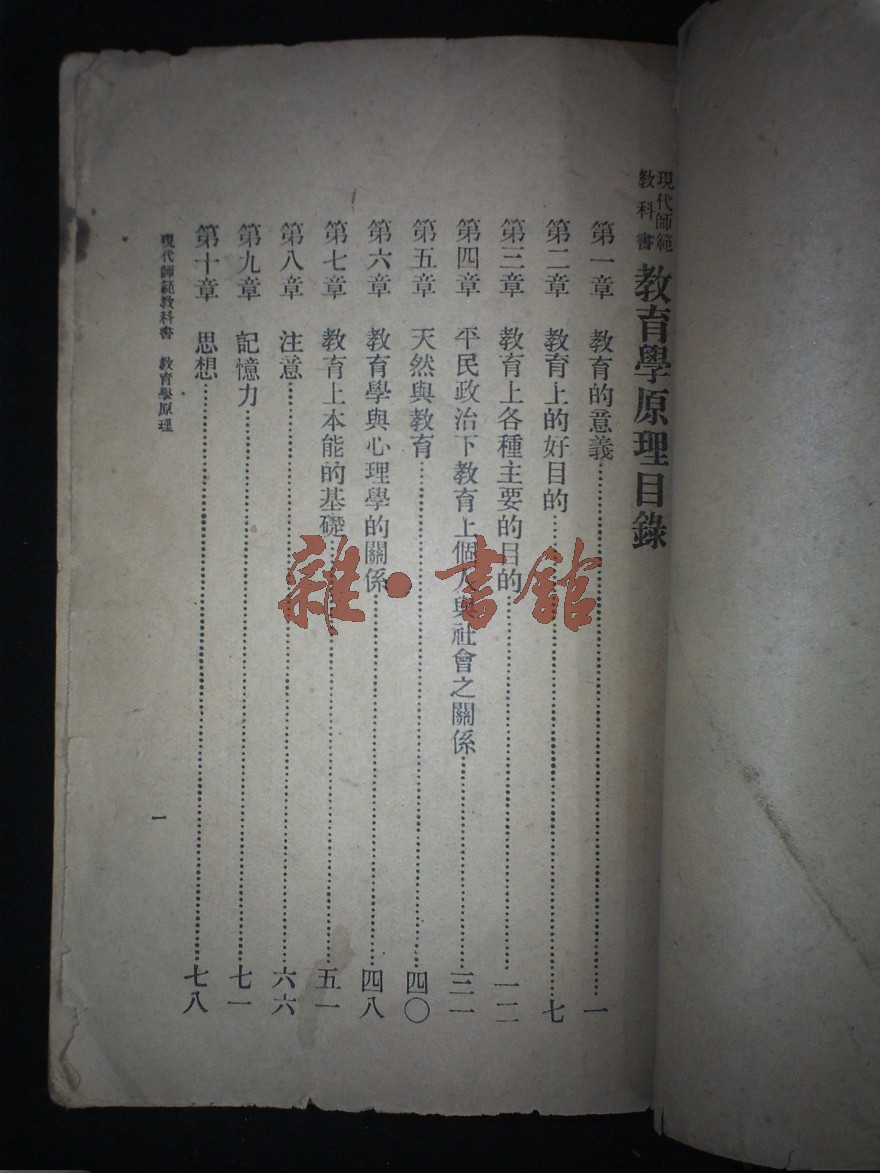 現代師範
教科書
教育學原理目錄
第一章 教育的意義……一
第二章 教育上的好目的……七
第三章 教育上各種主要的目的……一二
第四章 平民政治下教育上個人與社會之關係……三一
第五章 天然與教育……四〇
第六章 教育學與心理學的關係……四八
第七章 教育上本能的基礎……五一
第八章 注意……六六
第九章 記憶力……七一
第十章 思想……七八
現代師範教科書 教育學原理
一
雜·書館